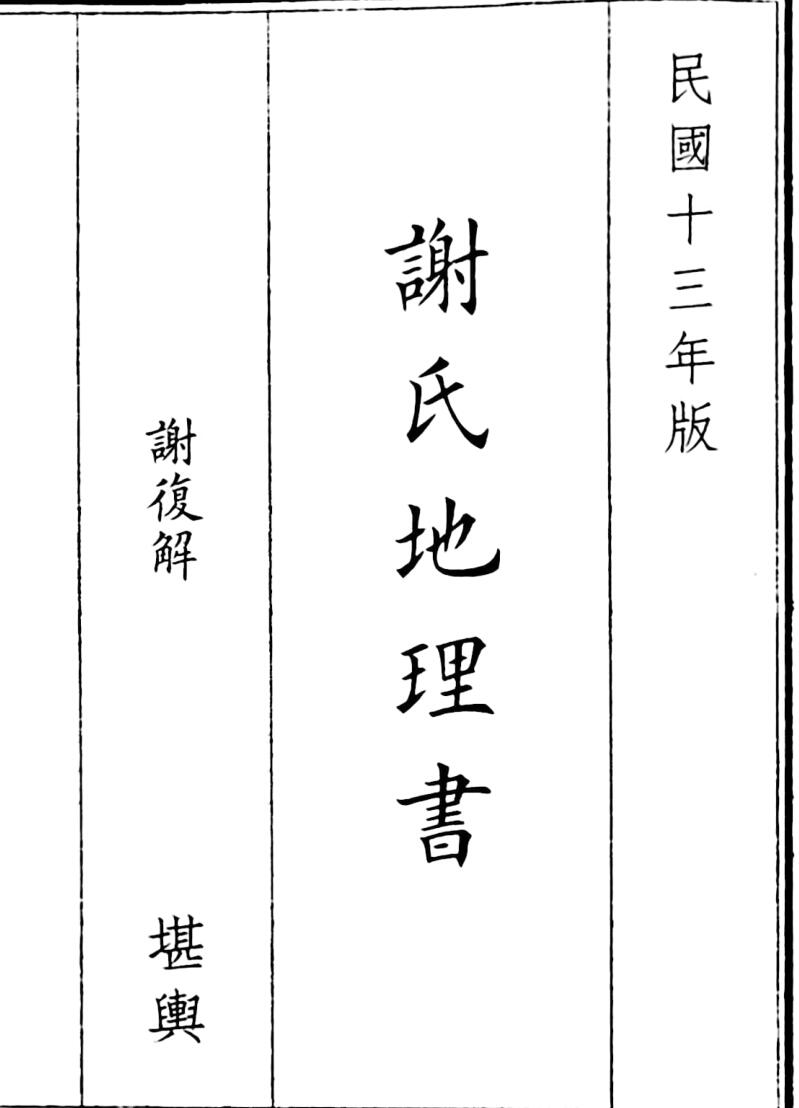 民國十三年版
謝氏地理書
謝復解
堪輿